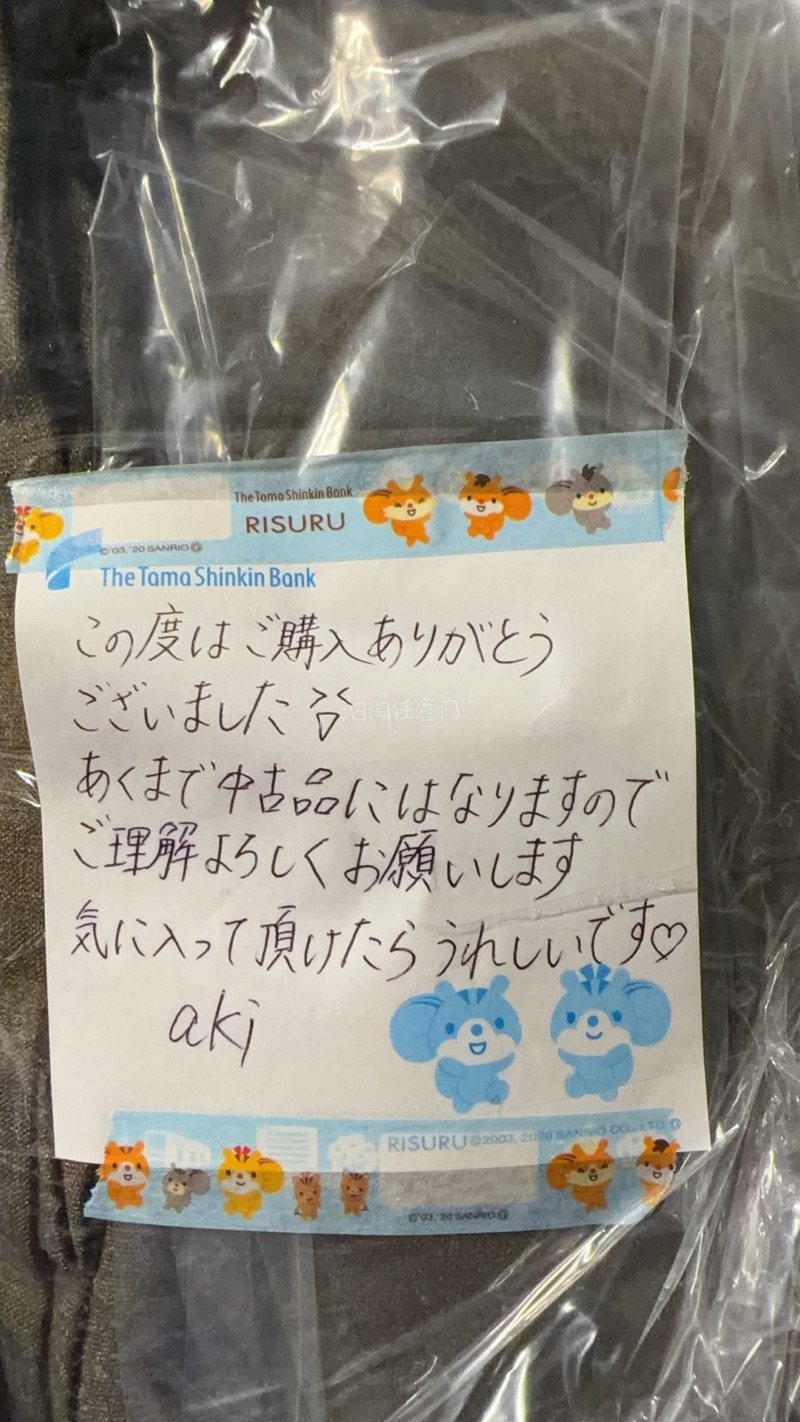 The Tama Shinkin Bank
RISURU
©'03,'20 SANRIO
The Tama Shinkin Bank
この度はご購入ありがとう
ございました
日淘任意门
あくまで中古品にはなりますので
ご理解よろしくお願いします
気に入って頂けたらうれしいです♡
aki
RISURU ©2003, 2020 SANRIO CO., LTD.
©'03,'20 SANRIO